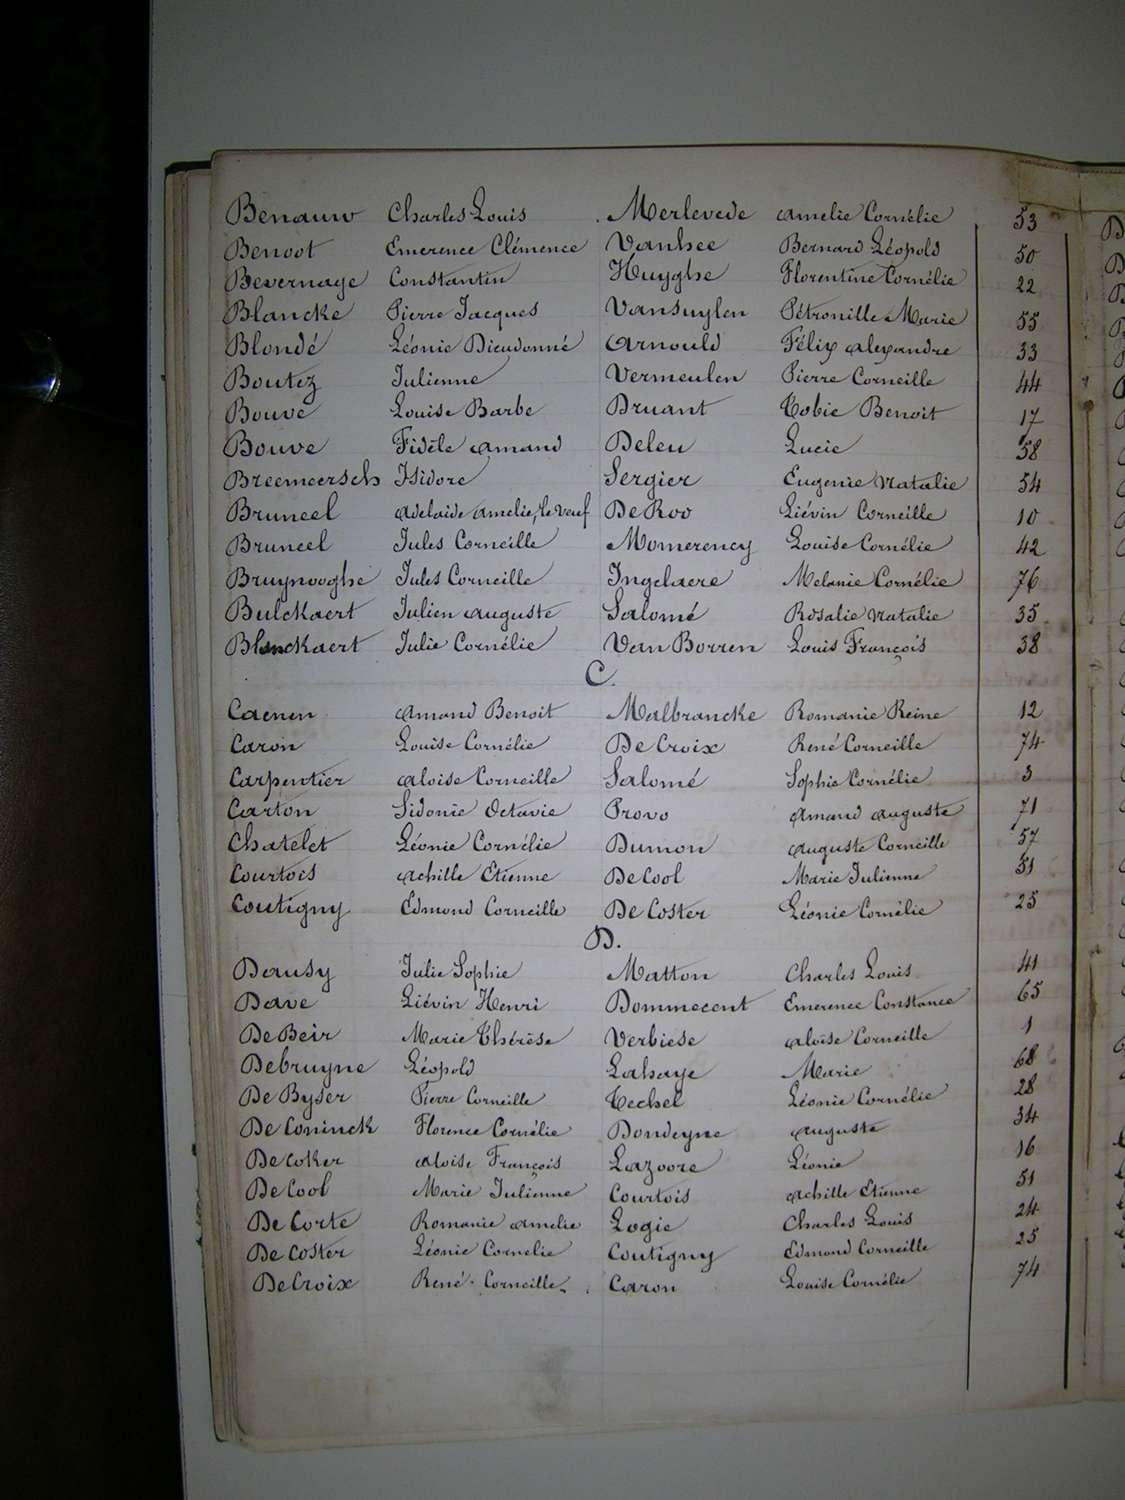 Benauw Charles Louis Merlevede Amelie Cornélie 53
Benoot Emerence Clémence Vanhee Bernard Léopold 50
Bevernage Constantin Huyghe Florentine Cornélie 22
Blancke Pierre Jacques Vansuylen Pétronille Marie 55
Blondé Léonie Dieudonné Arnould Félix Alexandre 33
Boutez Julienne Vermeulen Pierre Corneille 44
Bouve Louise Barbe Druant Tobie Benoit 17
Bouve Fidèle Amand Deleu Lucie 58
Breemeersch Isidore Sergier Eugenie Natalie 54
Bruneel Adelaide Amelie, le Veuf De Roo Liévin Corneille 10
Bruneel Jules Corneille Momerency Louise Cornélie 42
Bruynooghe Jules Corneille Ingelaere Melanie Cornélie 76
Bulckaert Julien Auguste Salomé Rosalie Natalie 35
Blanckaert Julie Cornélie Van Borren Louis François 38
C.
Caenen Amand Benoit Malbrancke Romanie Reine 12
Caron Louise Cornélie De Croix René Corneille 74
Carpentier Aloise Corneille Salomé Sophie Cornélie 3
Carton Sidonie Octavie Provo Amand Auguste 71
Chatelet Léonie Cornélie Dumon Auguste Corneille 57
Courtois Achille Etienne De Cool Marie Julienne 51
Coutigny Edmond Corneille De Coster Léonie Cornélie 25
D.
Dausy Julie Sophie Matton Charles Louis 41
Dave Liévin Henri Dommecent Emerence Constance 65
De Beir Marie Thérèse Verbiese Aloïse Corneille 1
Debruyne Léopold Lahaye Marie 68
De Byser Pierre Corneille Techel Léonie Cornélie 28
De Coninck Florence Cornélie Dondeyne Auguste 34
De Coker Aloise François Lazoore Léonie 16
De Cool Marie Julienne Courtois Achille Etienne 51
De Corte Romanie Amelie Logie Charles Louis 24
De Coster Léonie Cornelie Coutigny Edmond Corneille 25
De Croix René Corneille Caron Louise Cornélie 74